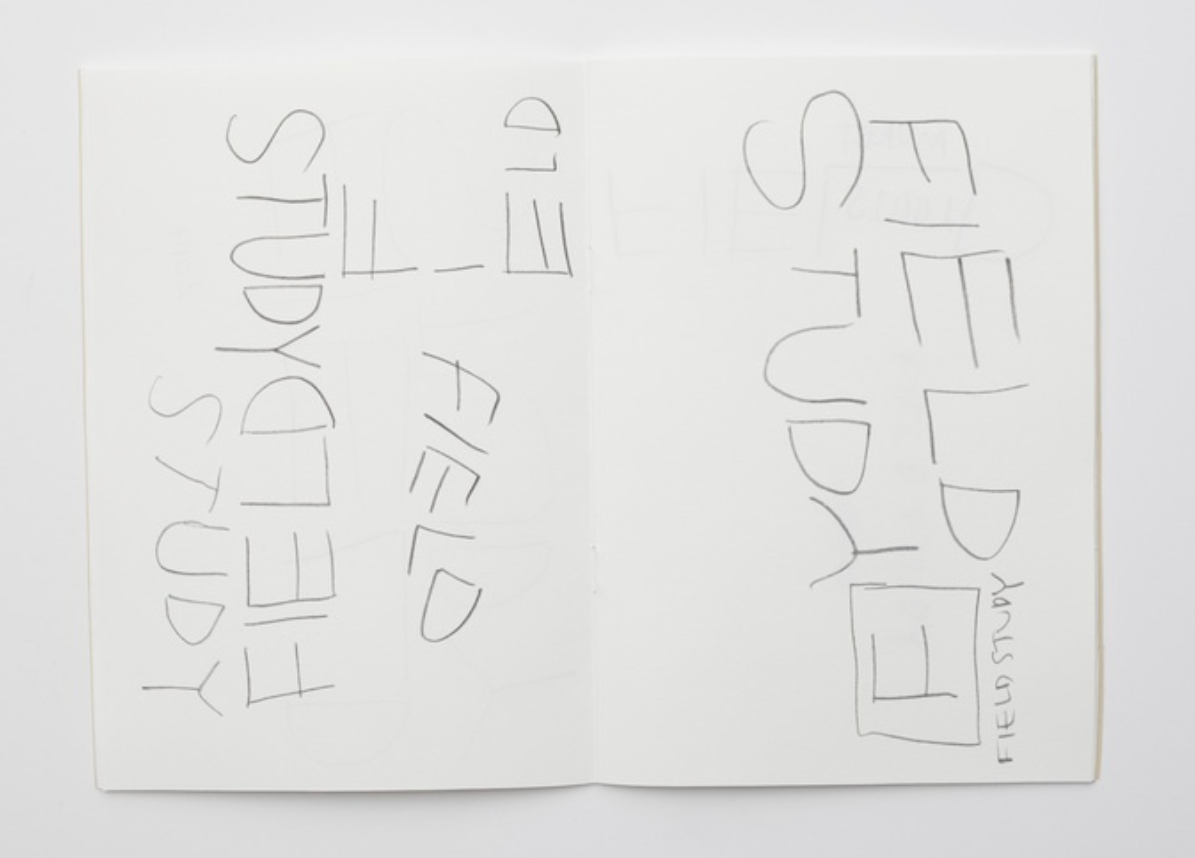 FIELD
FIELD
STUDY
FIELD
STUDY
FIELD
STUDY
F
FIELD STUDY